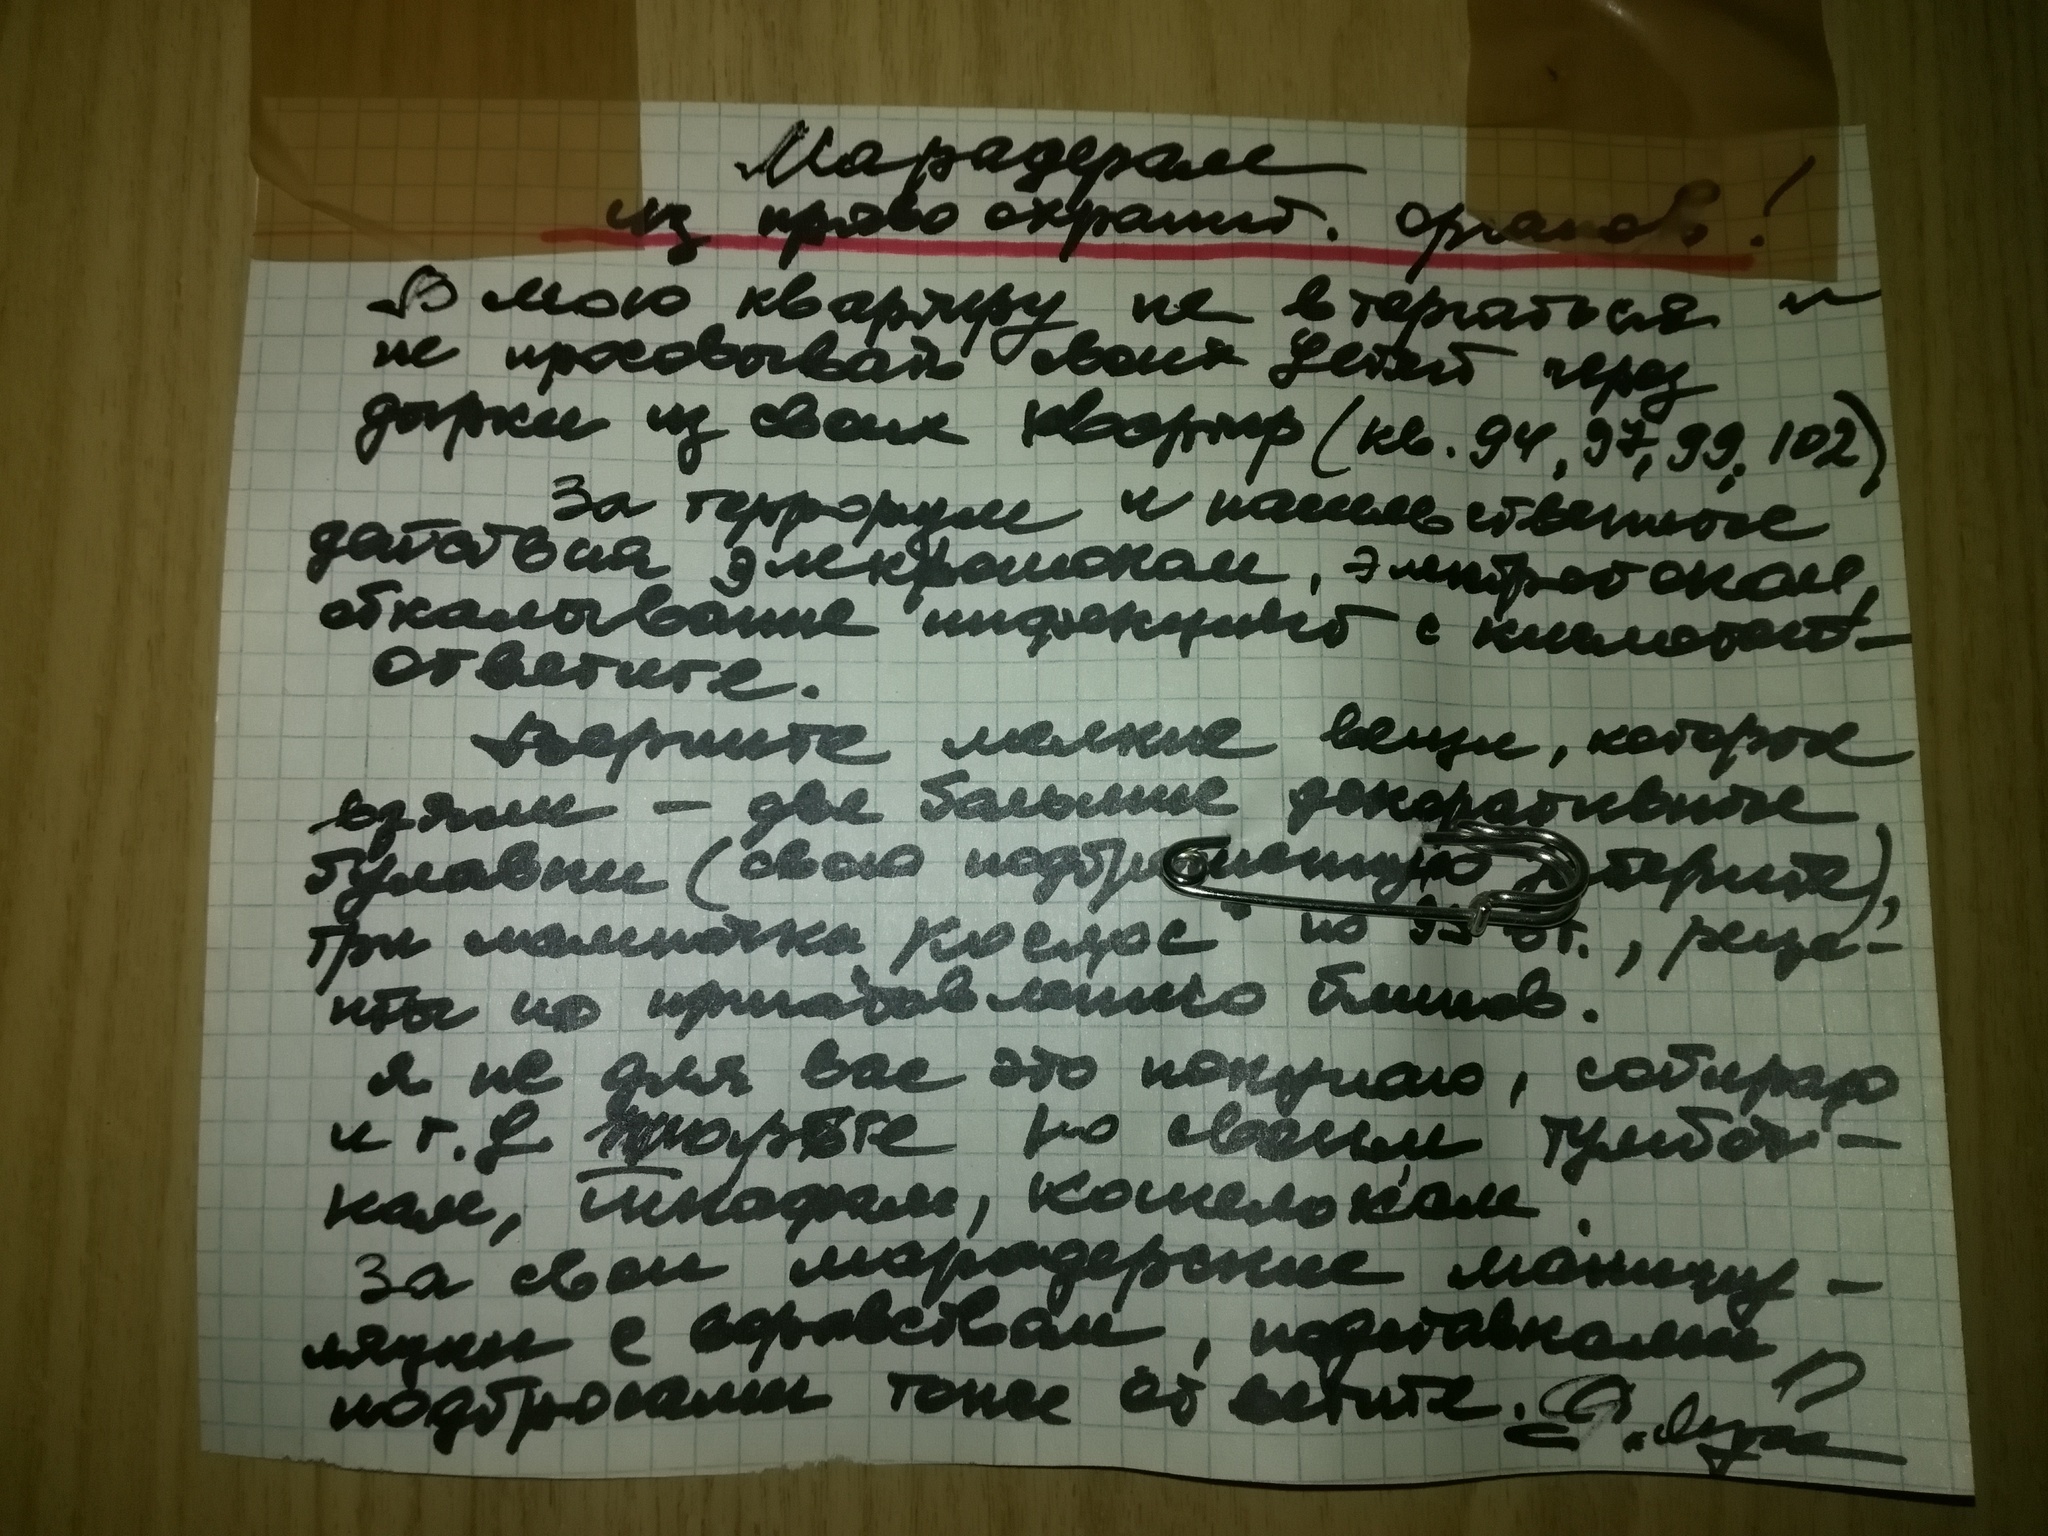 Марадерам
из право охранит. органов!
В мою квартиру не вторгаться и
не просовывать своих детей через
дырки из своих квартир (кв. 94, 97, 99, 102)
За терроризм и насильственные
действия электрошокам, электротокам,
обкалывание инфекцией с кислотой –
ответите.
Верните мелкие вещи, которые
взяли – две большие декоративные
булавки (свою подброшенную заберите),
три лампочки „Космос“ по 95 вт., реце-
пты по приготовлению блинов.
Я не для вас это покупаю, собираю
и т. д. по своим тумбоч-
кам, шкафам, кошелокам.
За свои марадерские манипу-
ляции с эдравствам, подставками
подбросами тоже ответите.